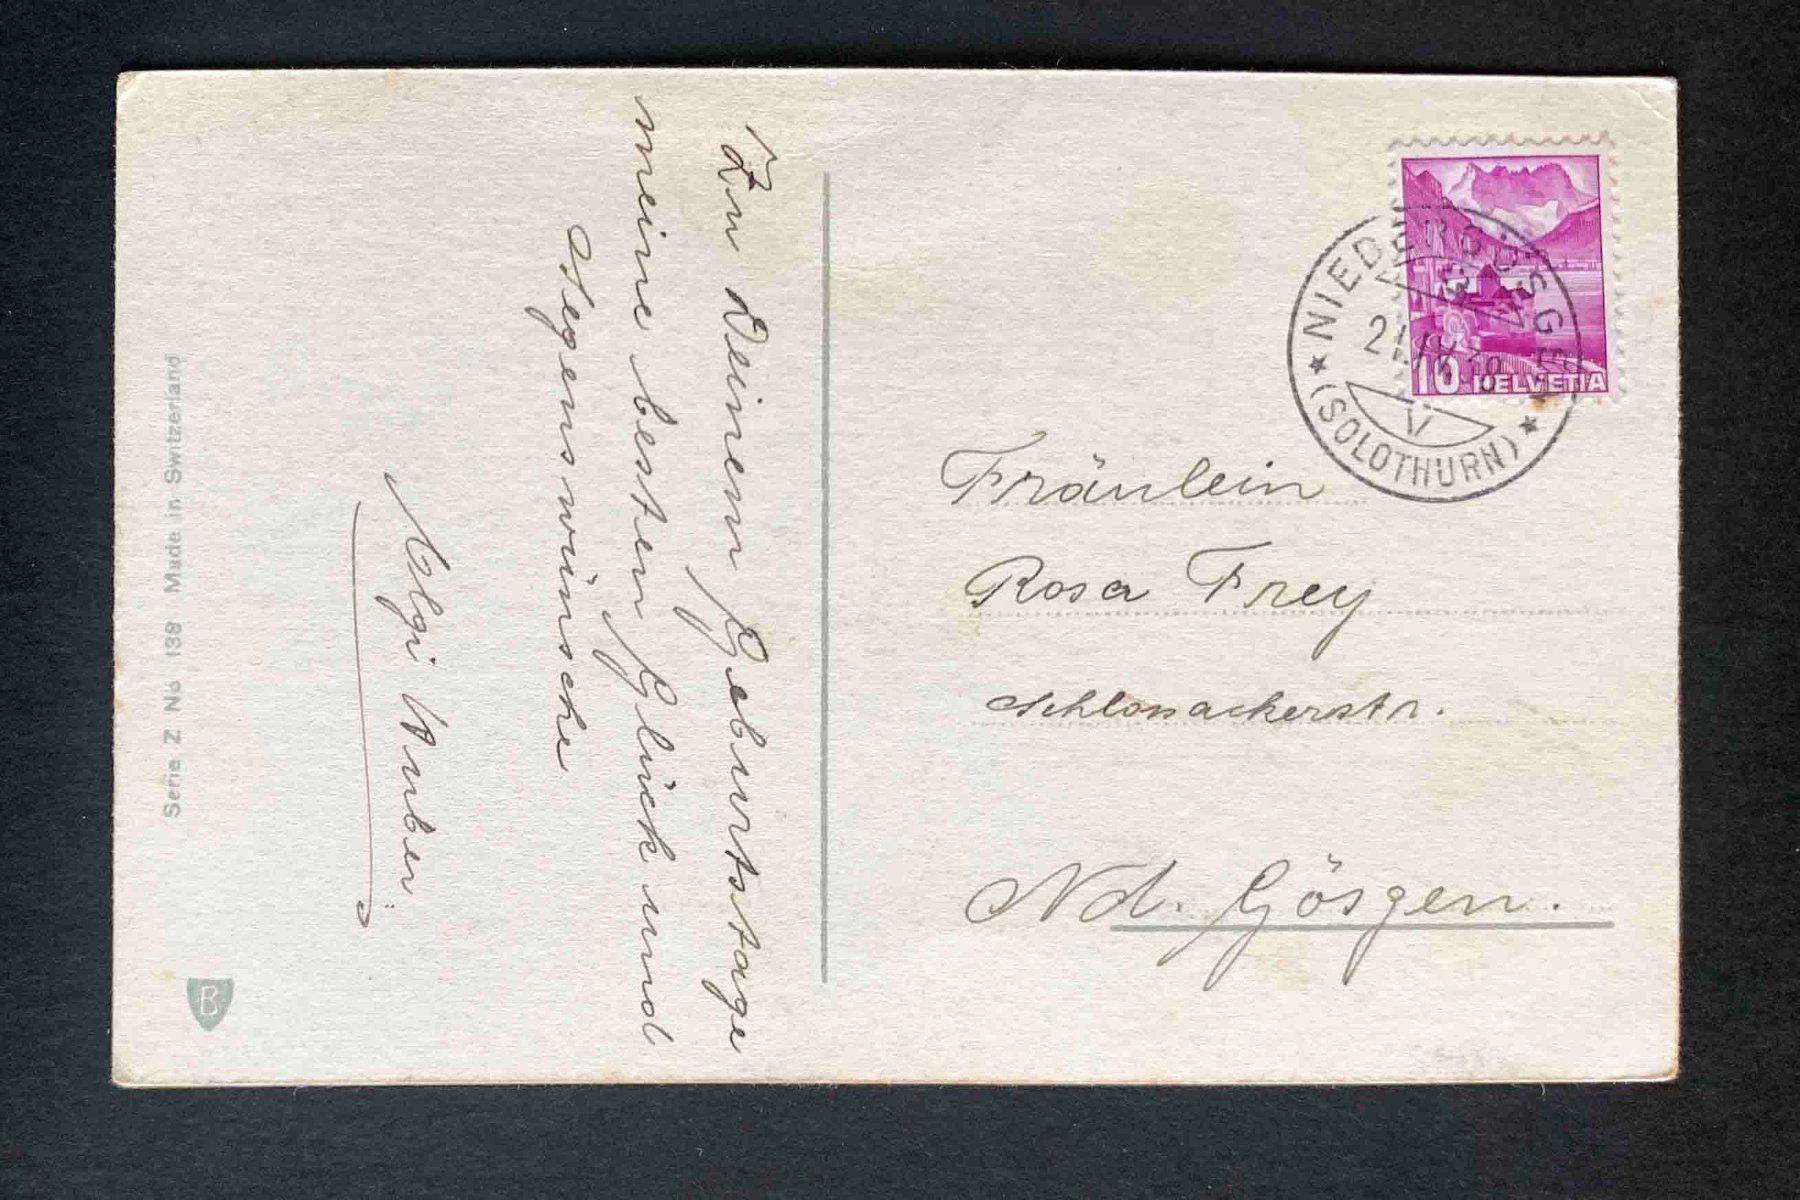 Zu Deinem Geburtstage
meine besten Glück und
Segenswünsche
Olgi Huber.
Serie Z No 138 Made in Switzerland
B
NIEDERGÖSGEN
V
(SOLOTHURN)
10 HELVETIA
Fräulein
Rosa Frey
Schlossackerstr.
Nd. Gösgen.